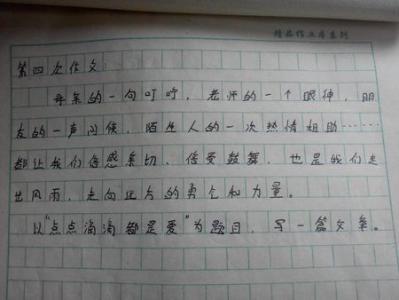 精品作业本系列
第四次作文:
母亲的一句叮咛，老师的一个眼神，朋
友的一声问候，陌生人的一次热情相助……
都让我们倍感亲切，倍受鼓舞，也是我们走
出风雨，走向远方的勇气和力量。
以"点点滴滴都是爱"为题目，写一篇文章。